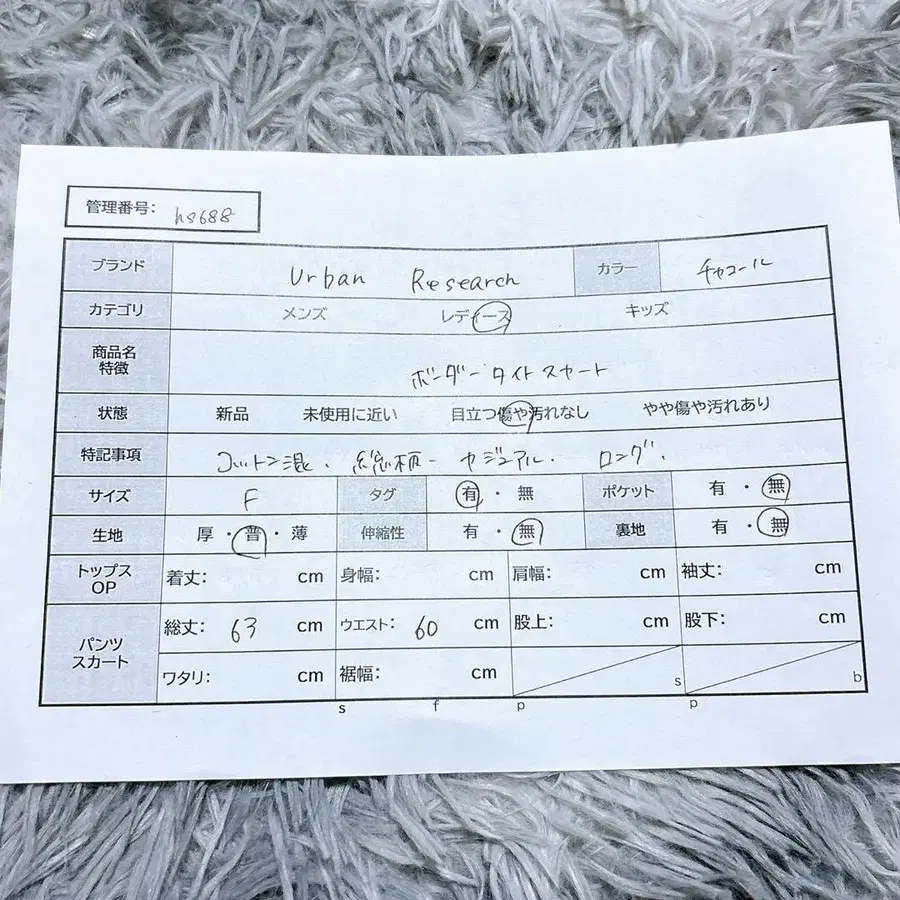 管理番号: hs688
ブランド Urban Research カラー チャコール
カテゴリ メンズ レディース キッズ
商品名 特徴 ボーダータイトスカート
状態 新品 未使用に近い 目立つ傷や汚れなし やや傷や汚れあり
特記事項 コットン混. 総柄- カジュアル. ロング.
サイズ F タグ 有 ・ 無 ポケット 有 ・ 無
生地 厚 ・ 普 ・ 薄 伸縮性 有 ・ 無 裏地 有 ・ 無
トップス OP 着丈: cm 身幅: cm 肩幅: cm 袖丈: cm
パンツ スカート 総丈: 63 cm ウエスト: 60 cm 股上: cm 股下: cm
ワタリ: cm 裾幅: cm s b
s f p p